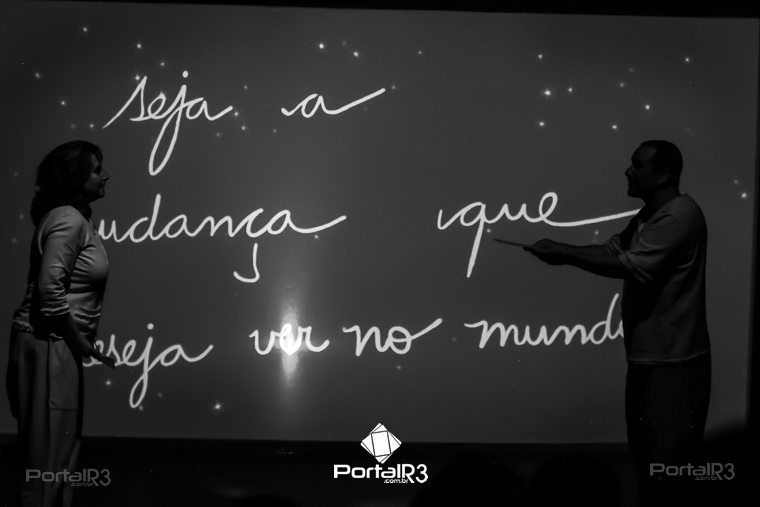 seja a
udança que
eseja ver no mund
PortalR3
.com.br
PortalR3
.com.br
PortalR3
.com.br